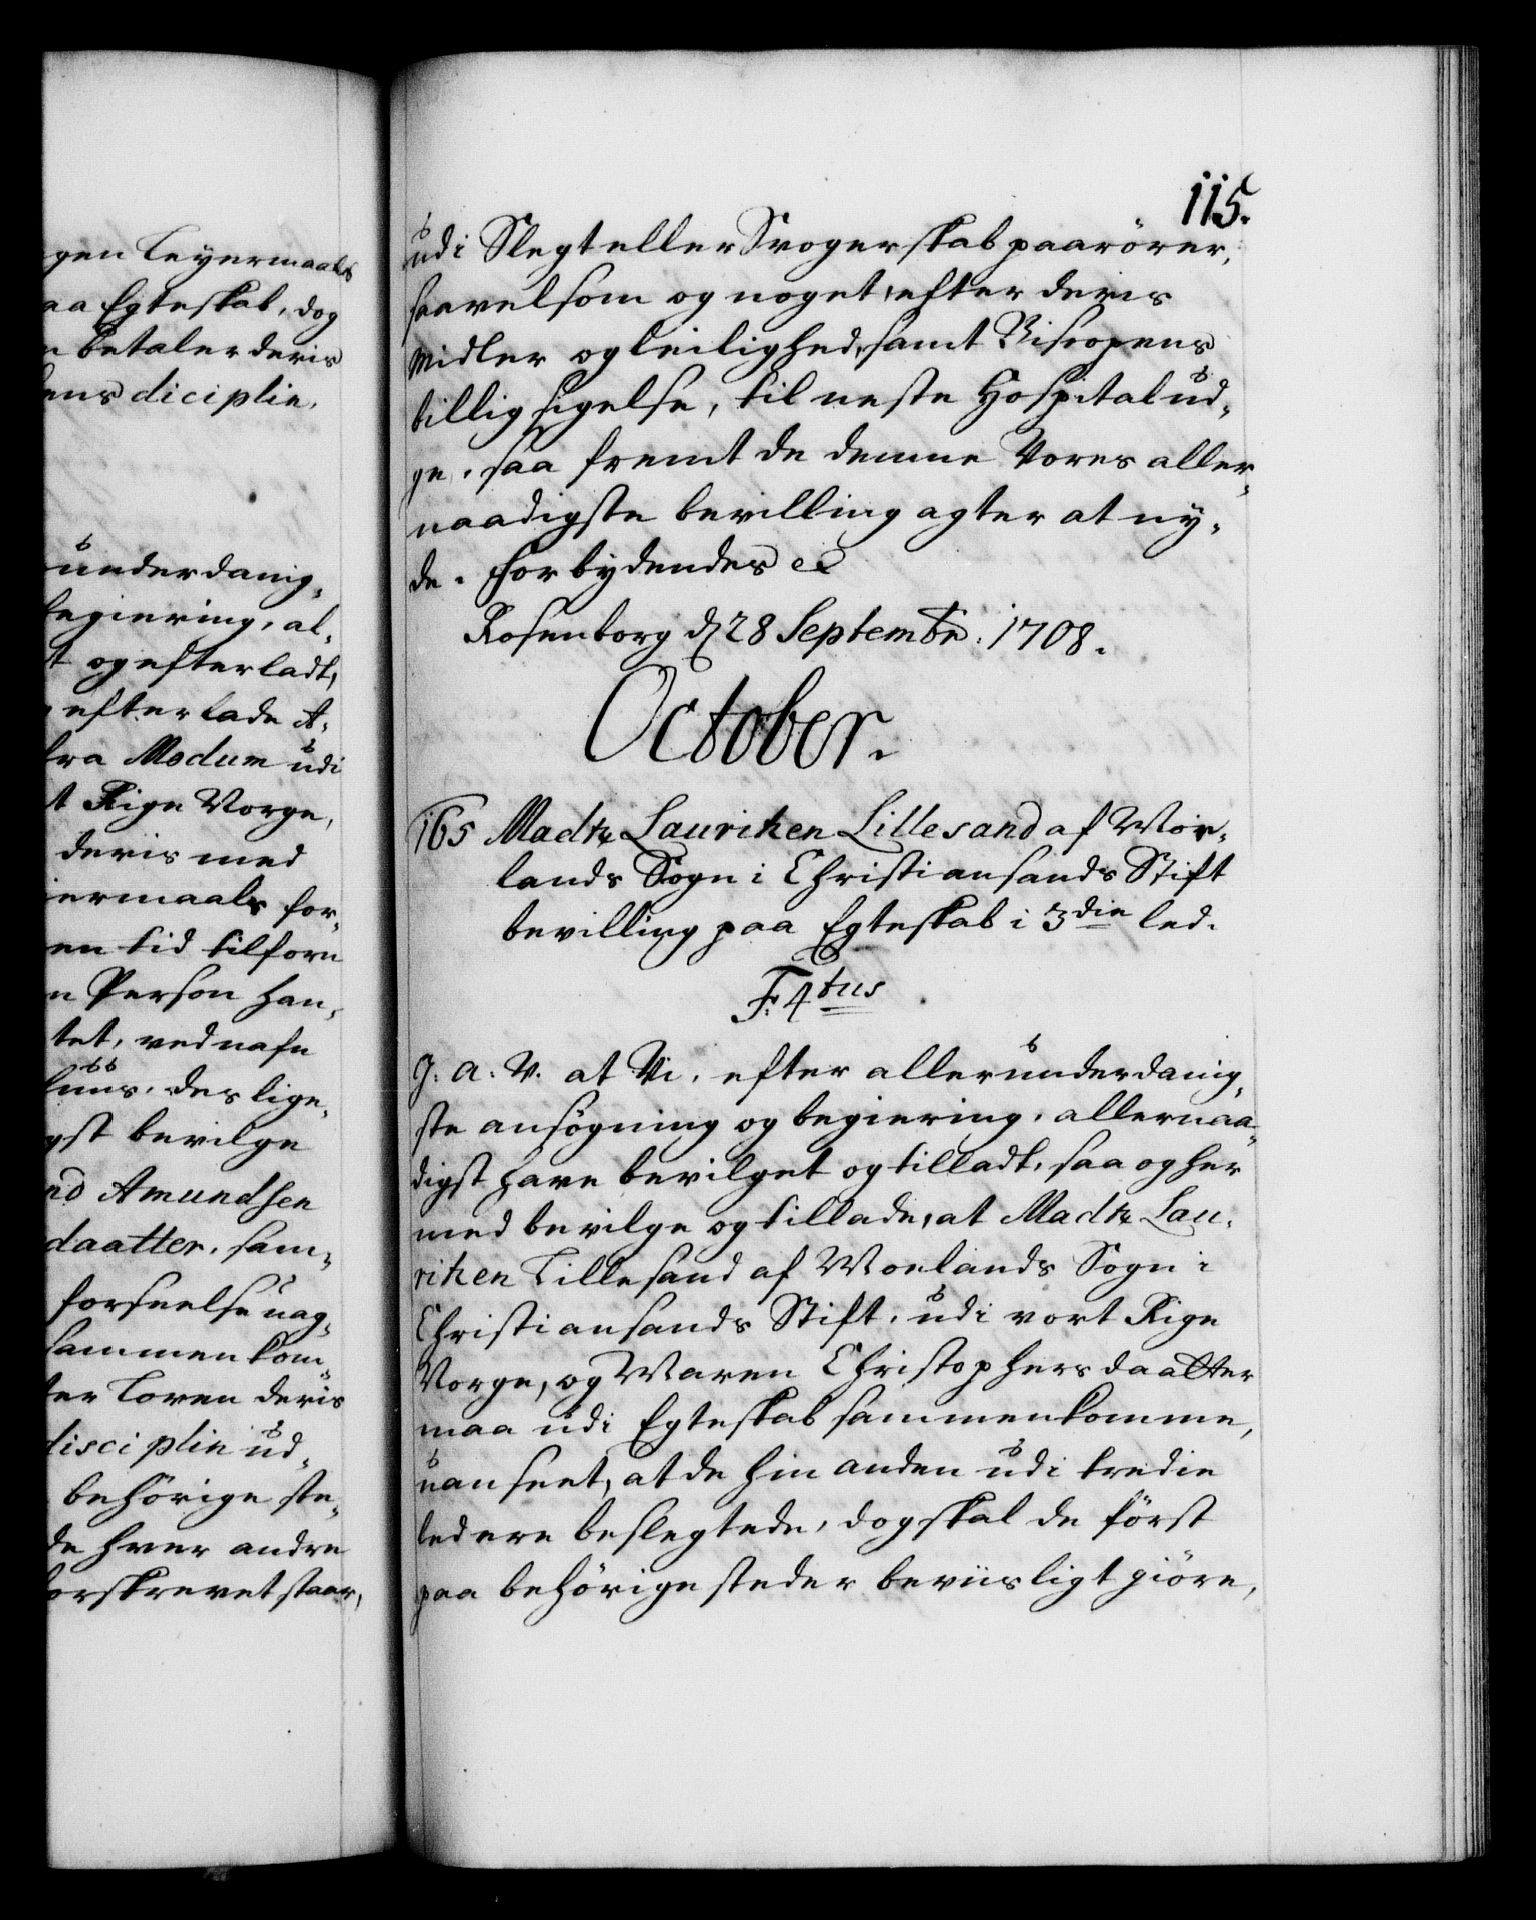 gen Leyermaals
aa Egteskab, dog
betaler deris
ens diciplin.
underdanig„
begiering, al„
t og efterladt,
efterlade A„
fra Modum udi
t Rige Norge,
deris med
iermaals for„
en tid tilforn
n Person han„
tet, ved nafn
huus, des lige„
gst bevilge
nd Amundsen
daatter, sam„
forseelse uag„
sammenkom„
ter Loven deris
disciplin ud„
behörige ste„
de hver andre
forskrevet staar,
115.
udi Slegt eller Svogerskab paarörer,
saavelsom og noget, efter deris
Midler og leilighed, samt Biscopens
billig sigelse, til neste Hospital ud„
ge, saa fremt de denne Vores aller„
naadigste bevilling agter at ny„
de. Forbydendes etc
Rosenborg d 28 Septembr: 1708.
October.
165 Madtz Lauritzen Lillesand af Mør„
lands Sogn i Christiansands Stift
bevilling paa Egteskab i 3die led.
F: 4tus
G: A: V. at Vi, efter allerunderdanig„
ste ansögning og begiering, allernaa„
digst have bevilget og tilladt, saa og her
med bevilge og tillade, at Madtz Lau„
ritzen Lillesand af Moelands Sogn i
Christiansands Stift, udi vort Rige
Norge, og Maren Christophersdaatter
maa udi Egteskab sammenkomme,
uanseet, at de hin anden udi tredie
led ere beslegtede, dog skal de först
paa behörige steder beviisligt giöre,